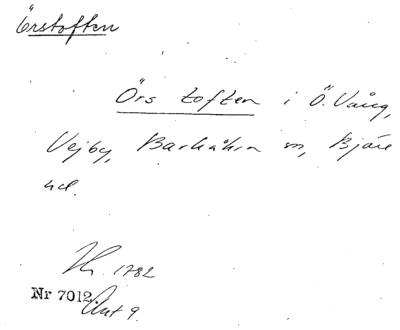 Örstoften
Örs toften i Ö. Vång,
Vejby, Barkåkra sn, Bjäre
hd.
1782
Nr 7012 Akt 9.